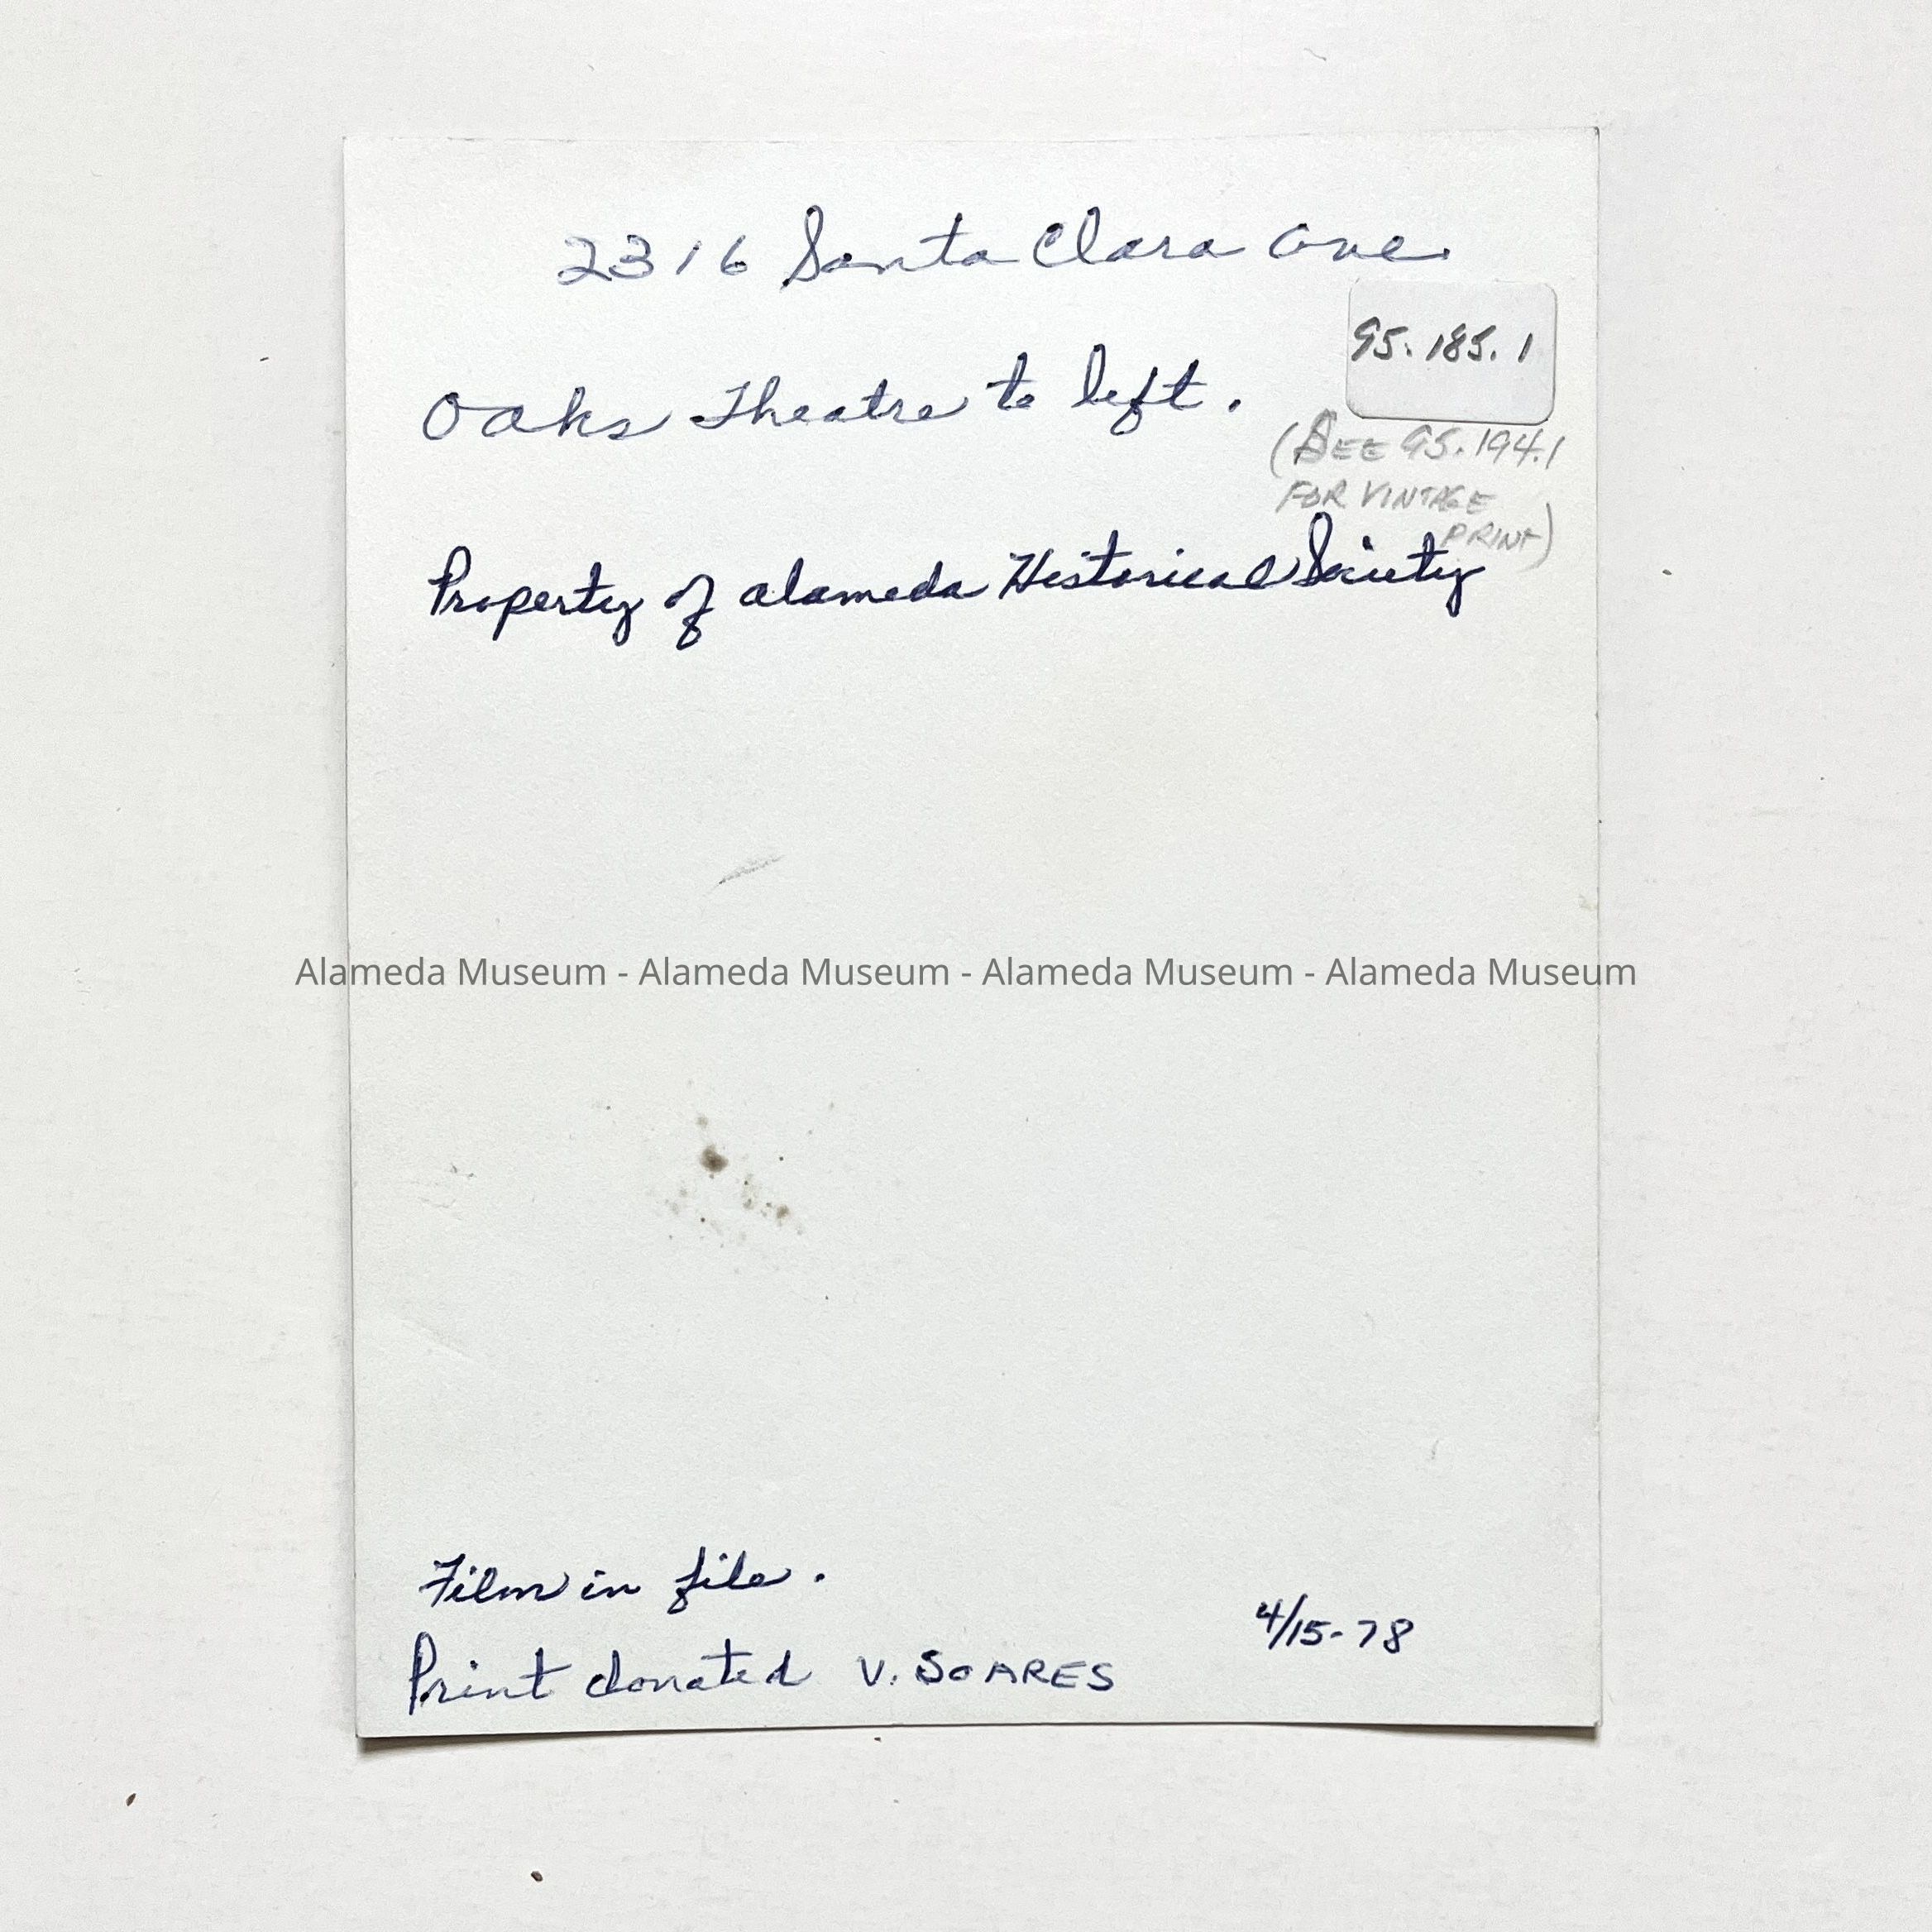 2316 Santa Clara Ave.
95.185.1
Oaks Theatre to left.
(SEE 95.194.1
FOR VINTAGE
PRINT)
Property of Alameda Historical Society
Alameda Museum - Alameda Museum - Alameda Museum - Alameda Museum
Film in file.
4/15-78
Print donated V. SOARES